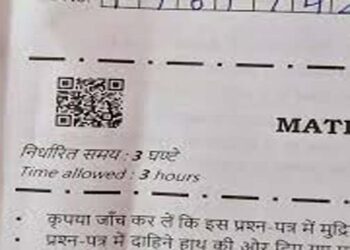 MAT
निर्धारित समय : 3 घण्टे
Time allowed : 3 hours
• कृपया जाँच कर लें कि इस प्रश्न-पत्र में
• प्रश्न-पत्र में दाहिने हाथ की ओर